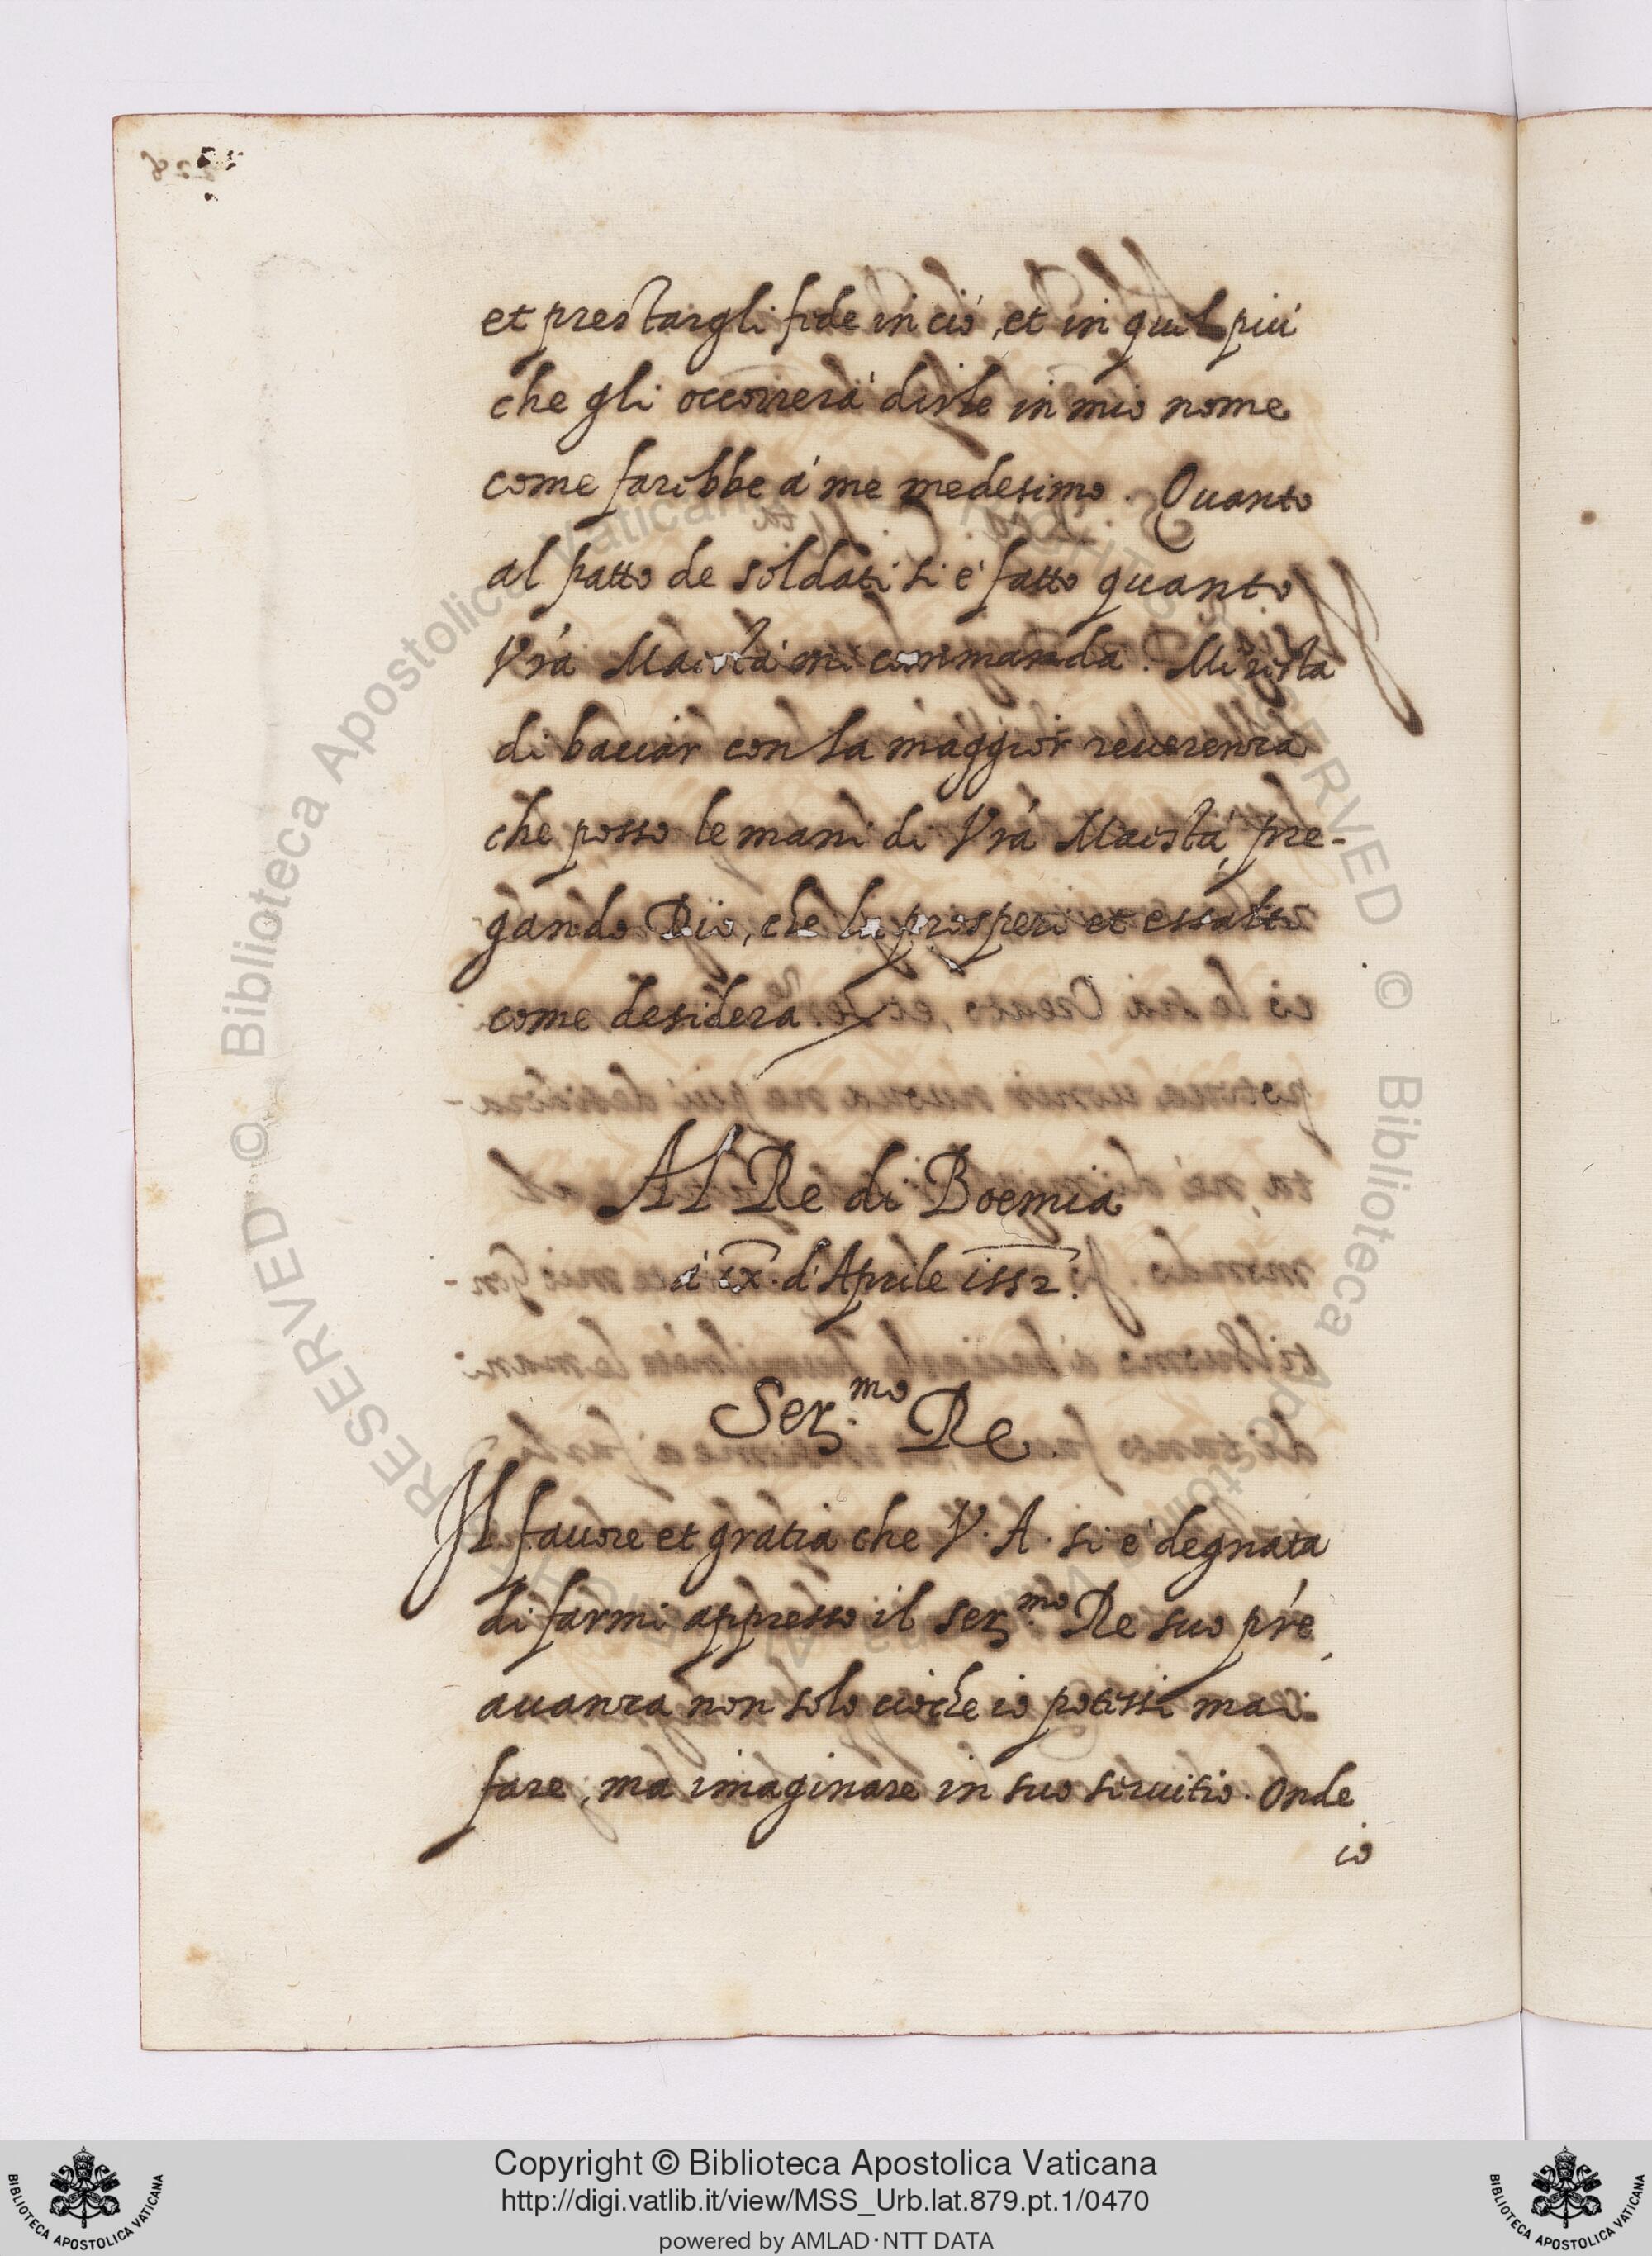 et prestargli fede in ciò, et in quel più
che gli occorrerà dirle in mio nome
come farebbe à me medesimo. Quanto
al fatto de soldati si è fatto quanto
Vrà Maiestà mi commanda. Mi resta
di baciar con la maggior reverenza
che posso le mani di Vrà Maestà, pre-
gando Dio, che la prosperi et essalti
come desidera.
Al Re di Boemia
à ix. d'Aprile 1552.
Ser.mo Re.
Il favore et gratia che V. A. si è degnata
di farmi appresso il ser.mo Re suo pre,
avanza non solo ciòche io potessi mai
fare, ma imaginare in suo servitio. Onde
io
Copyright © Biblioteca Apostolica Vaticana
http://digi.vatlib.it/view/MSS_Urb.lat.879.pt.1/0470
powered by AMLAD·NTT DATA
BIBLIOTECA APOSTOLICA VATICANA
BIBLIOTECA APOSTOLICA VATICANA